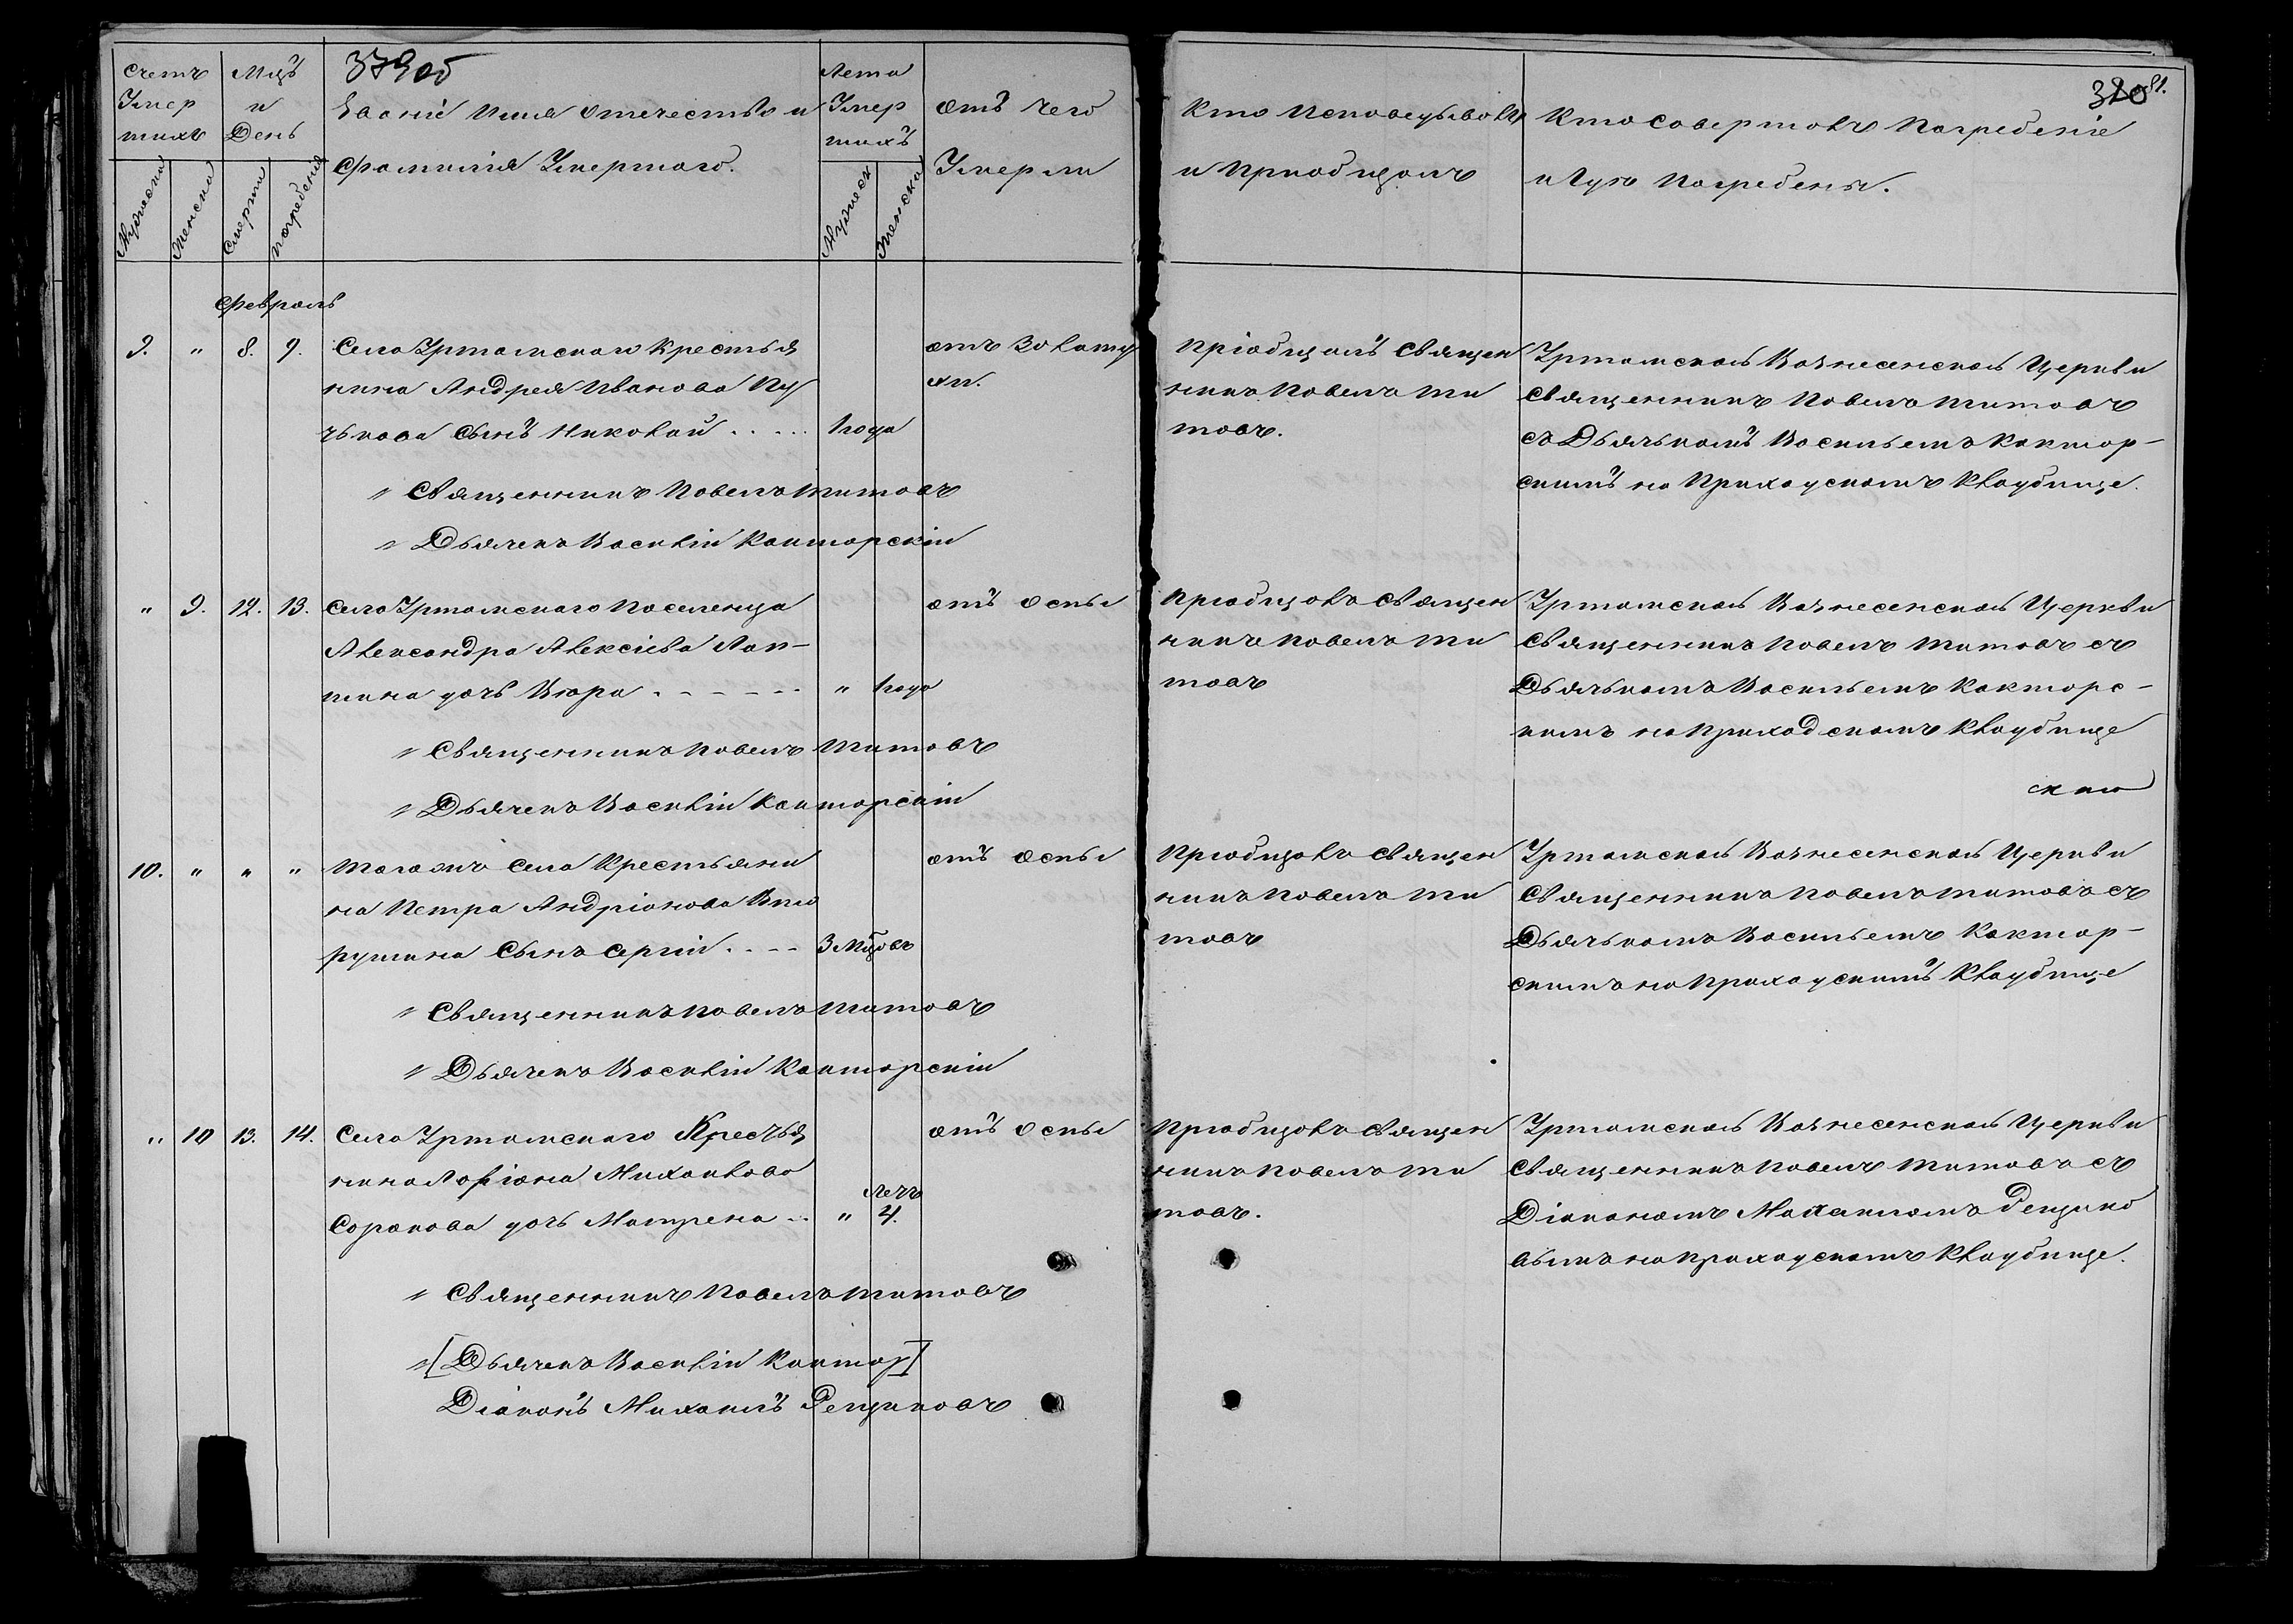 379об
380 81.
Счетъ Умер шихъ
Мцъ и День
Званіе Имя Отечество и
Фамилія Умершаго.
Лета Умер шихъ
отъ чего
Умерли
Кто Исповедывалъ
и Приобщалъ
Кто Совершалъ Погребеніе
и Где Погребены.
Мужеска
Женска
Смерти
погребенія
Мужеск
Женска
Февраль
9. " 8. 9. Села Уртамскаго Крестья
нина Андрея Иванова Пу
чькова Сынъ Николай . . . . 1 года
отъ Золоту
хи.
Пріобщалъ Священ
никъ Павелъ Ти
товъ.
Уртамской Вознесенской Церкви
Священникъ Павелъ Титовъ
съ Дьячькомъ Васильемъ Кантор-
скимъ на Приходскомъ Кладбище.
Священникъ Павелъ Титовъ
Дьячекъ Василій Канторскій
" 9. 12. 13. Села Уртамскаго Поселенца
Александра Алексіева Лап-
шина дочь Вѣра - - - - - - " 1 года
отъ Оспы
Приобщалъ Священ
никъ Павелъ Ти
товъ
Уртамской Вознесенской Церкви
Священникъ Павелъ Титовъ съ
Дьячькомъ Васильемъ Канторс-
кимъ на Приходскомъ Кладбище
Священникъ Павелъ Титовъ
Дьячекъ Василій Канторскій
10. " " " Тогожъ Села Крестьяни
на Петра Андріанова
сынъ Сергій . . - - 3 Мцовъ
отъ Оспы
Приобщалъ Священ
никъ Павелъ Ти
товъ
Уртамской Вознесенской Церкви
Священникъ Павелъ Титовъ съ
Дьячькомъ Васильемъ Кантор-
скимъ на Приходскимъ Кладбище
Священникъ Павелъ Титовъ
Дьячекъ Василій Канторскій
" 10 13. 14. Села Уртамскаго Крестья
нина Ларіона Михайлова
Соракова дочь Матрена - . " Летъ 4.
отъ Оспы
Приобщалъ Священ
никъ Павелъ Ти
товъ.
Уртамской Вознесенской Церкви
Священникъ Павелъ Титовъ съ
Діакономъ Михаиломъ Рещико
вымъ на Приходскомъ Кладбище.
Священникъ Павелъ Титовъ
[Дьячекъ Василій Кантор]
Діаконъ Михаилъ Рещиковъ